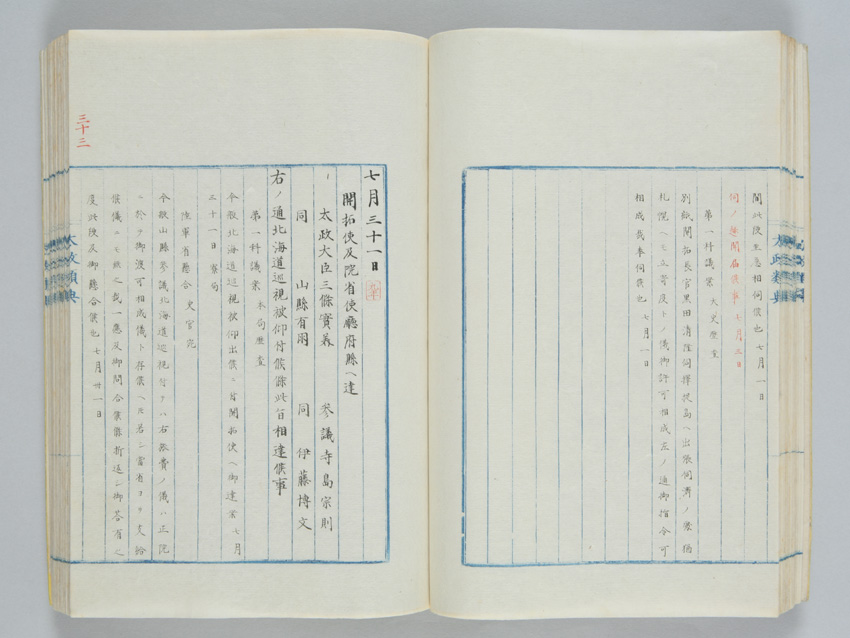 聞此段至急相伺候也 七月一日
伺ノ趣聞届候事 七月三日
第一科議案 大史歴査
別紙開拓長官黒田清隆伺擇捉島ヘ出張伺濟ノ末猶
札幌ヘモ立寄度トノ儀御許可相成左ノ通御指令可
相成哉奉伺候也 七月一日
三十三
七月三十一日
開拓使及院省使廳府縣ヘ達
太政大臣三條實美 參議寺島宗則
同 山縣有朋 同 伊藤博文
右ノ通北海道巡視被仰付候條此旨相達候事
第一科議案 本局歴査
今般北海道巡視被仰出候ニ付開拓使ヘ御達案 七月
三十一日 寮局
陸軍省懸合 史官宛
今般山縣參議北海道巡視付テハ右旅費ノ儀ハ正院
ニ於テ御渡可相成儀ト存候ヘ共若シ當省ヨリ支給
候儀ニモ候ヘ哉一應及御問合候條折返シ御答有之
度此段及御懸合候也 七月卅一日
太政類典
太政類典